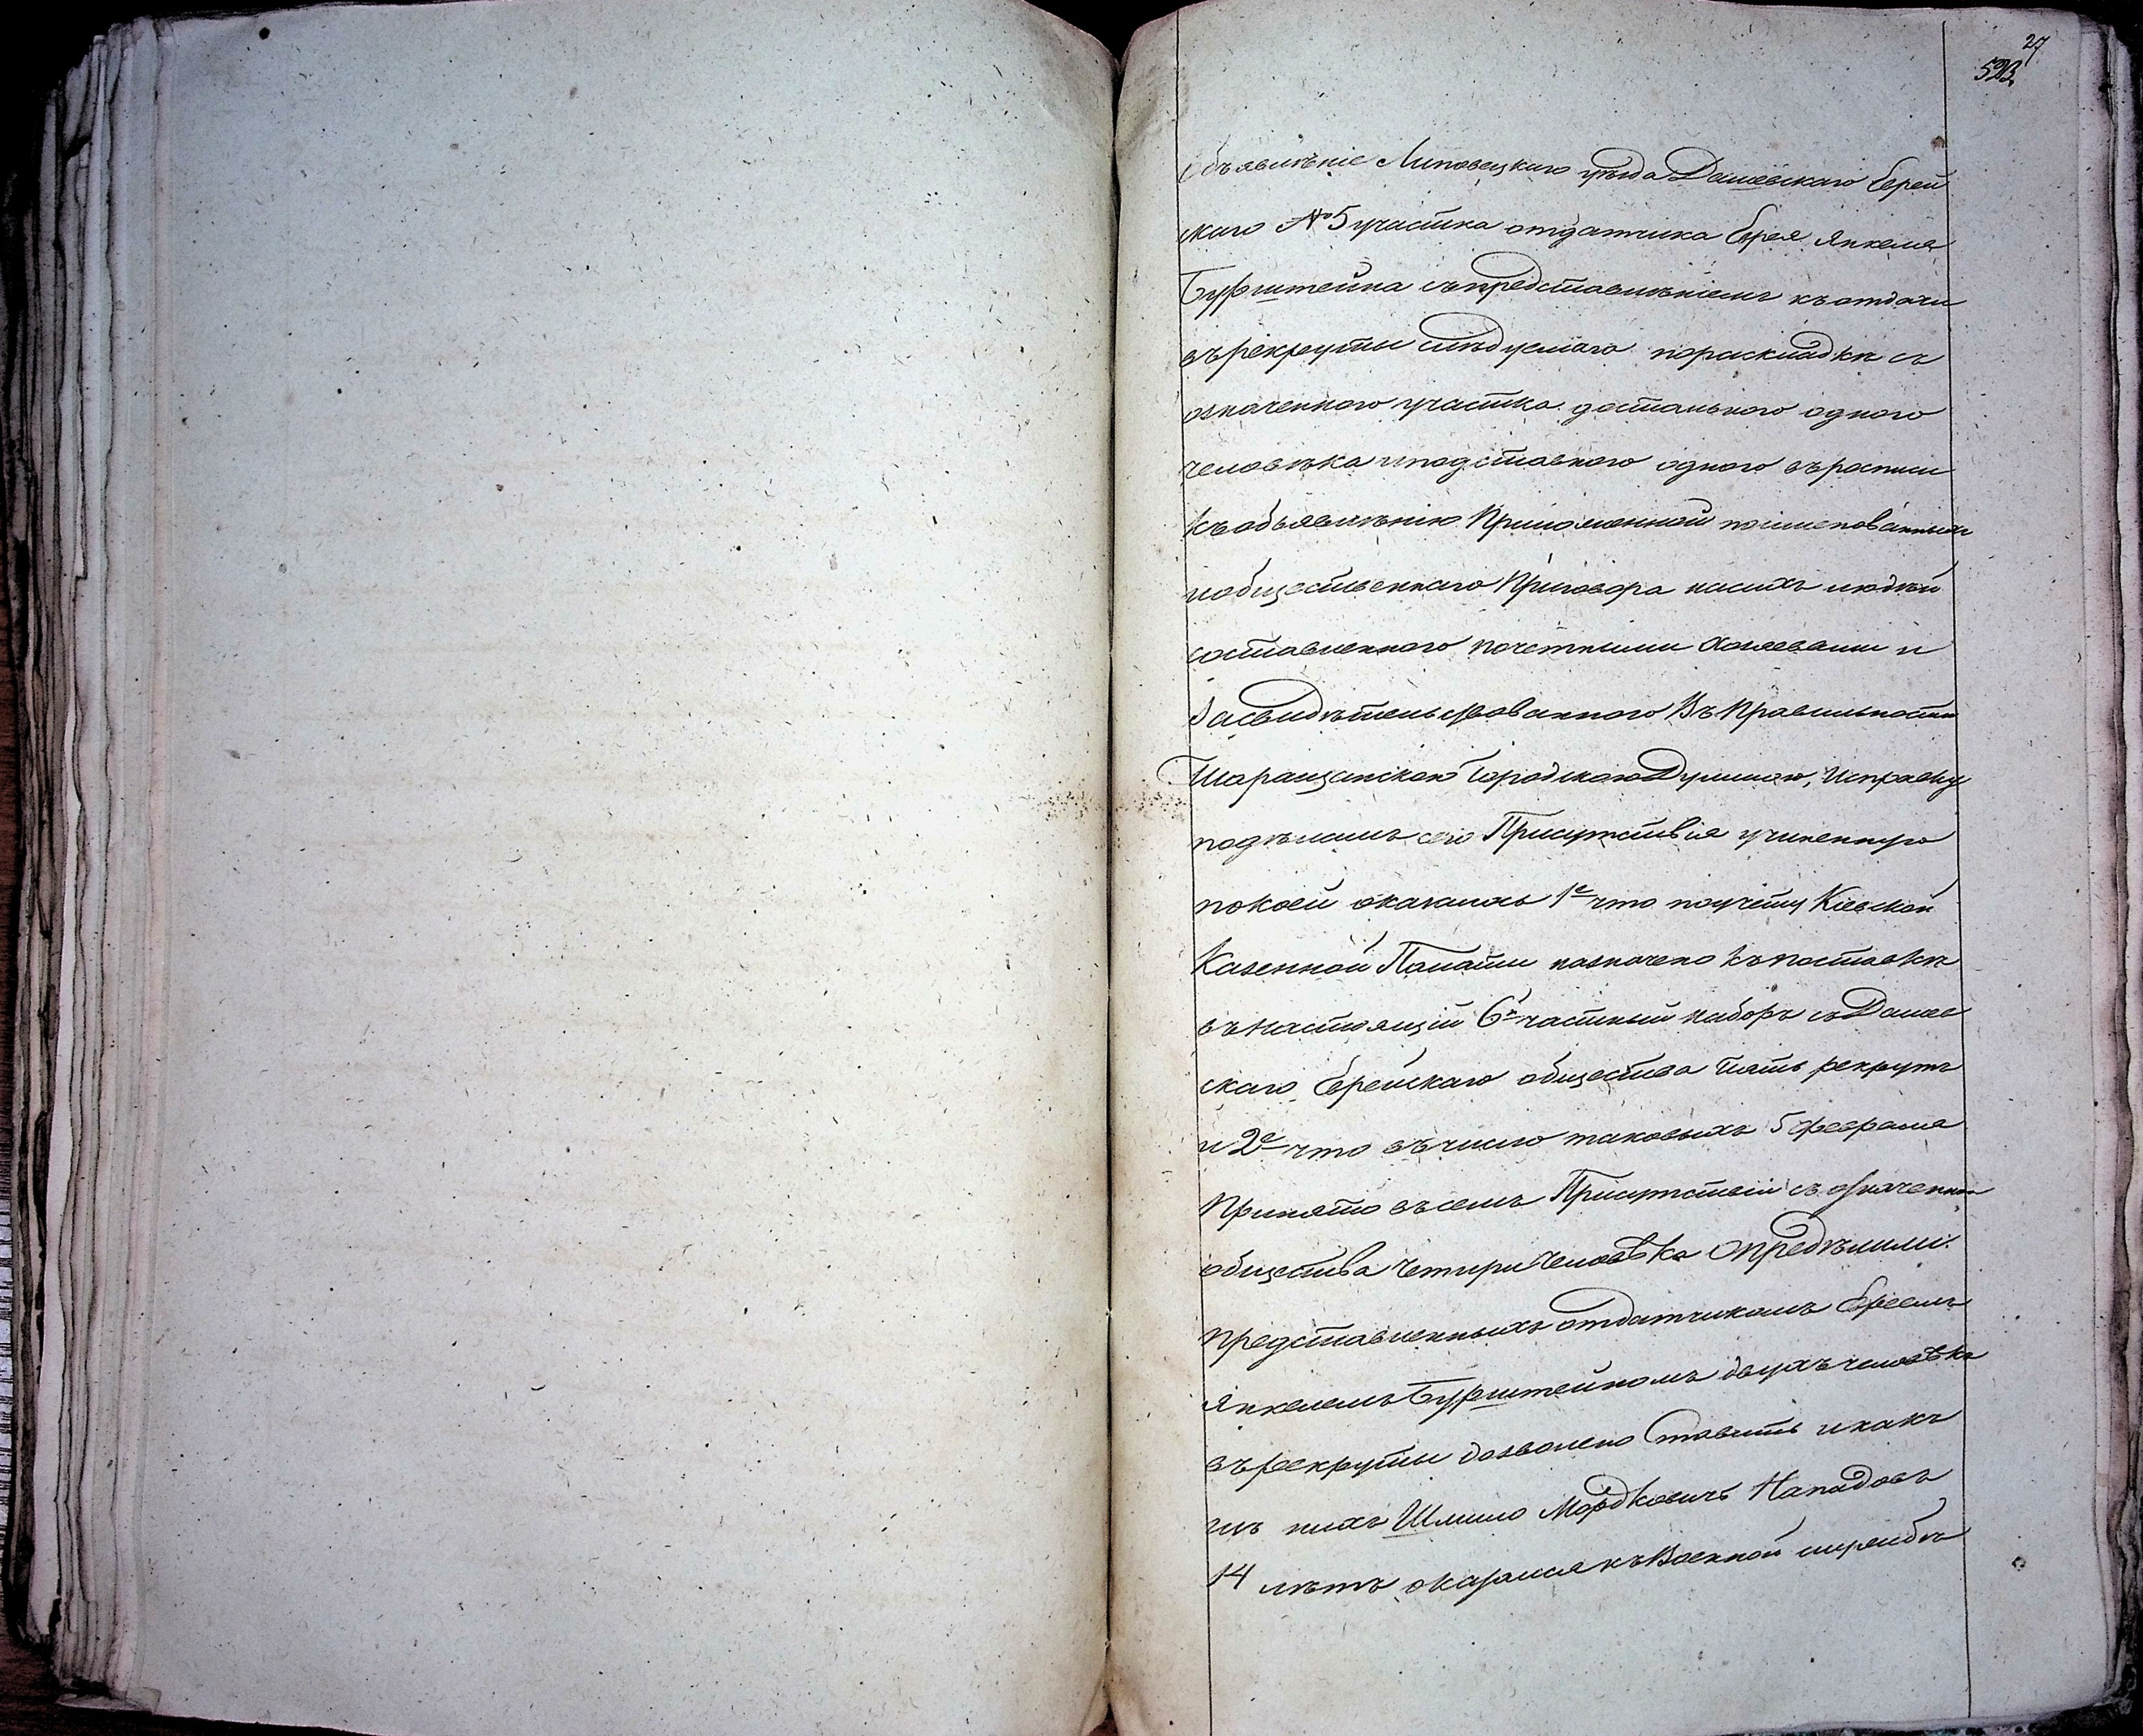 27
523
Объявленіе Липовецкаго уѣзда Дашевскаго Еврей
скаго №5 участка отдатчика Еврея Янкеля
Бурштейна съ представленіемъ къ отдачи
въ рекруты слѣдуемаго по раскладкѣ съ
означенного участка достальнаго одного
человѣка и подставного одного въ росписи
къ объявленію приложенной поименованныхъ
и общественнаго Приговора на сихъ людей
составленного почетными хозяевами и
засвидѣтельствованного въ правильности
Таращанскою Городскою Думою, и справку
по дѣламъ сего Присутствія учиненную
по коей оказалось 1е что по учету Кіевской
Казенной Палаты назначено къ поставкѣ
въ настоящій 6й частный наборъ съ Дашев
скаго Еврейскаго общества пять рекрутъ
и 2е что въ число таковыхъ 5 февраля
принято въ семъ Присутствіи съ означенного
общества четыри человѣка Опредѣлили:
представленныхъ отдатчикомъ Евреемъ
Янкелемъ Бурштейномъ двухъ человѣкъ
въ рекруты дозволено ставить и какъ
изъ нихъ Шлиомо Мордковичъ
14 лѣтъ оказался къ Военной службѣ